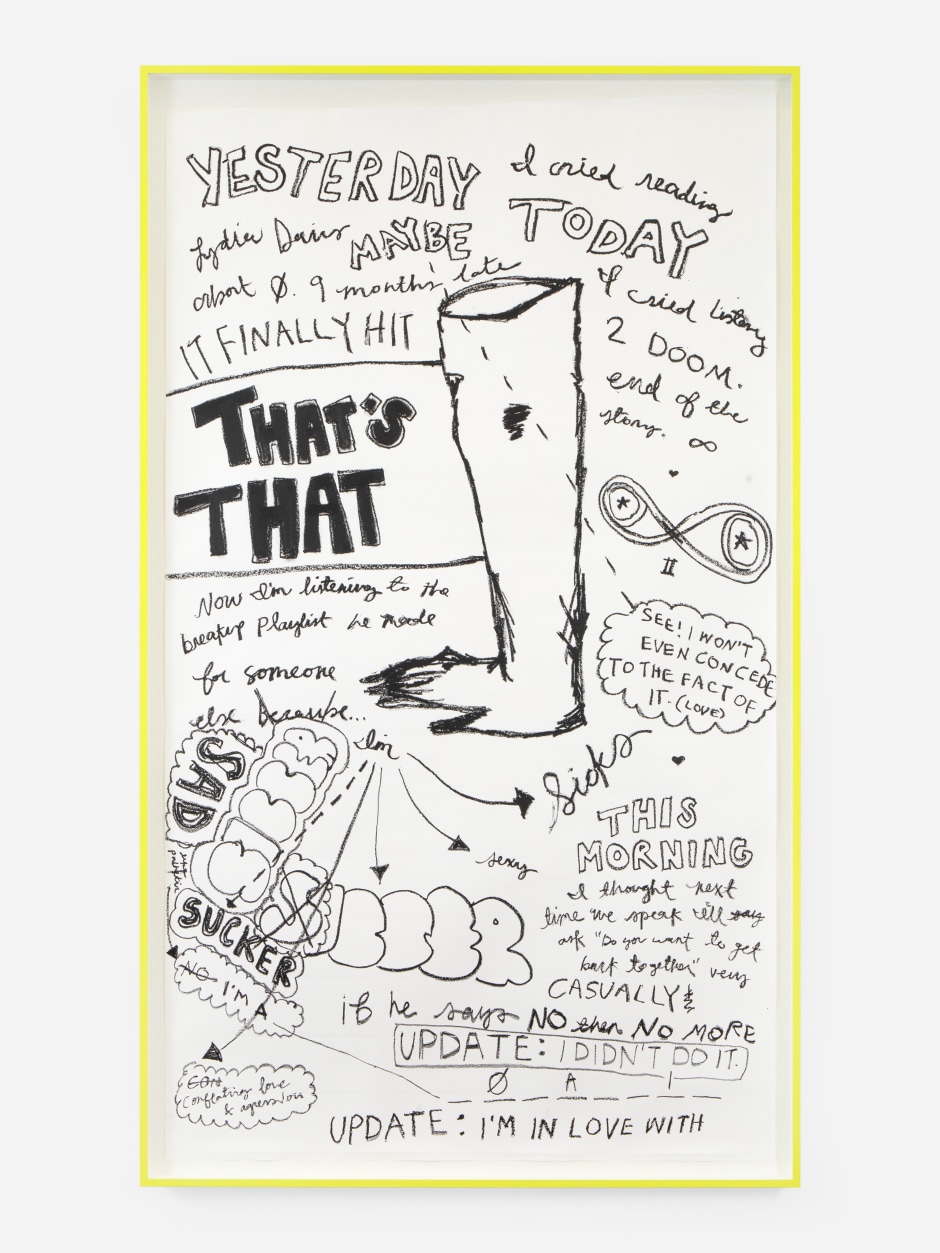 YESTERDAY I cried reading
Lydia Davis MAYBE TODAY
about Ø. 9 months late
IT FINALLY HIT
I cried listening
2 DOOM.
end of the
story. ∞
THAT'S
THAT
II
Now I'm listening to the
breakup playlist he made
for someone
else because...
I'm
SEE! I WON'T
EVEN CONCEDE
TO THE FACT OF
IT. (LOVE)
SAD
SUCKER
NO I'M
A
Sicko
sexy
THIS
MORNING
I thought next
time we speak I'll say
ask "Do you want to get
back together" very
CASUALLY &
if he says NO then NO MORE
UPDATE: I DIDN'T DO IT.
Ø A I
conflating love
& agression
UPDATE: I'M IN LOVE WITH